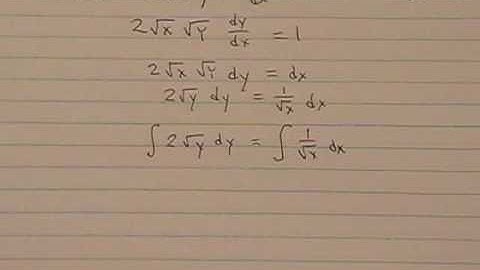 2√x √y dy/dx = 1
2√x √y dy = dx
2√y dy = 1/√x dx
∫ 2√y dy = ∫ 1/√x dx